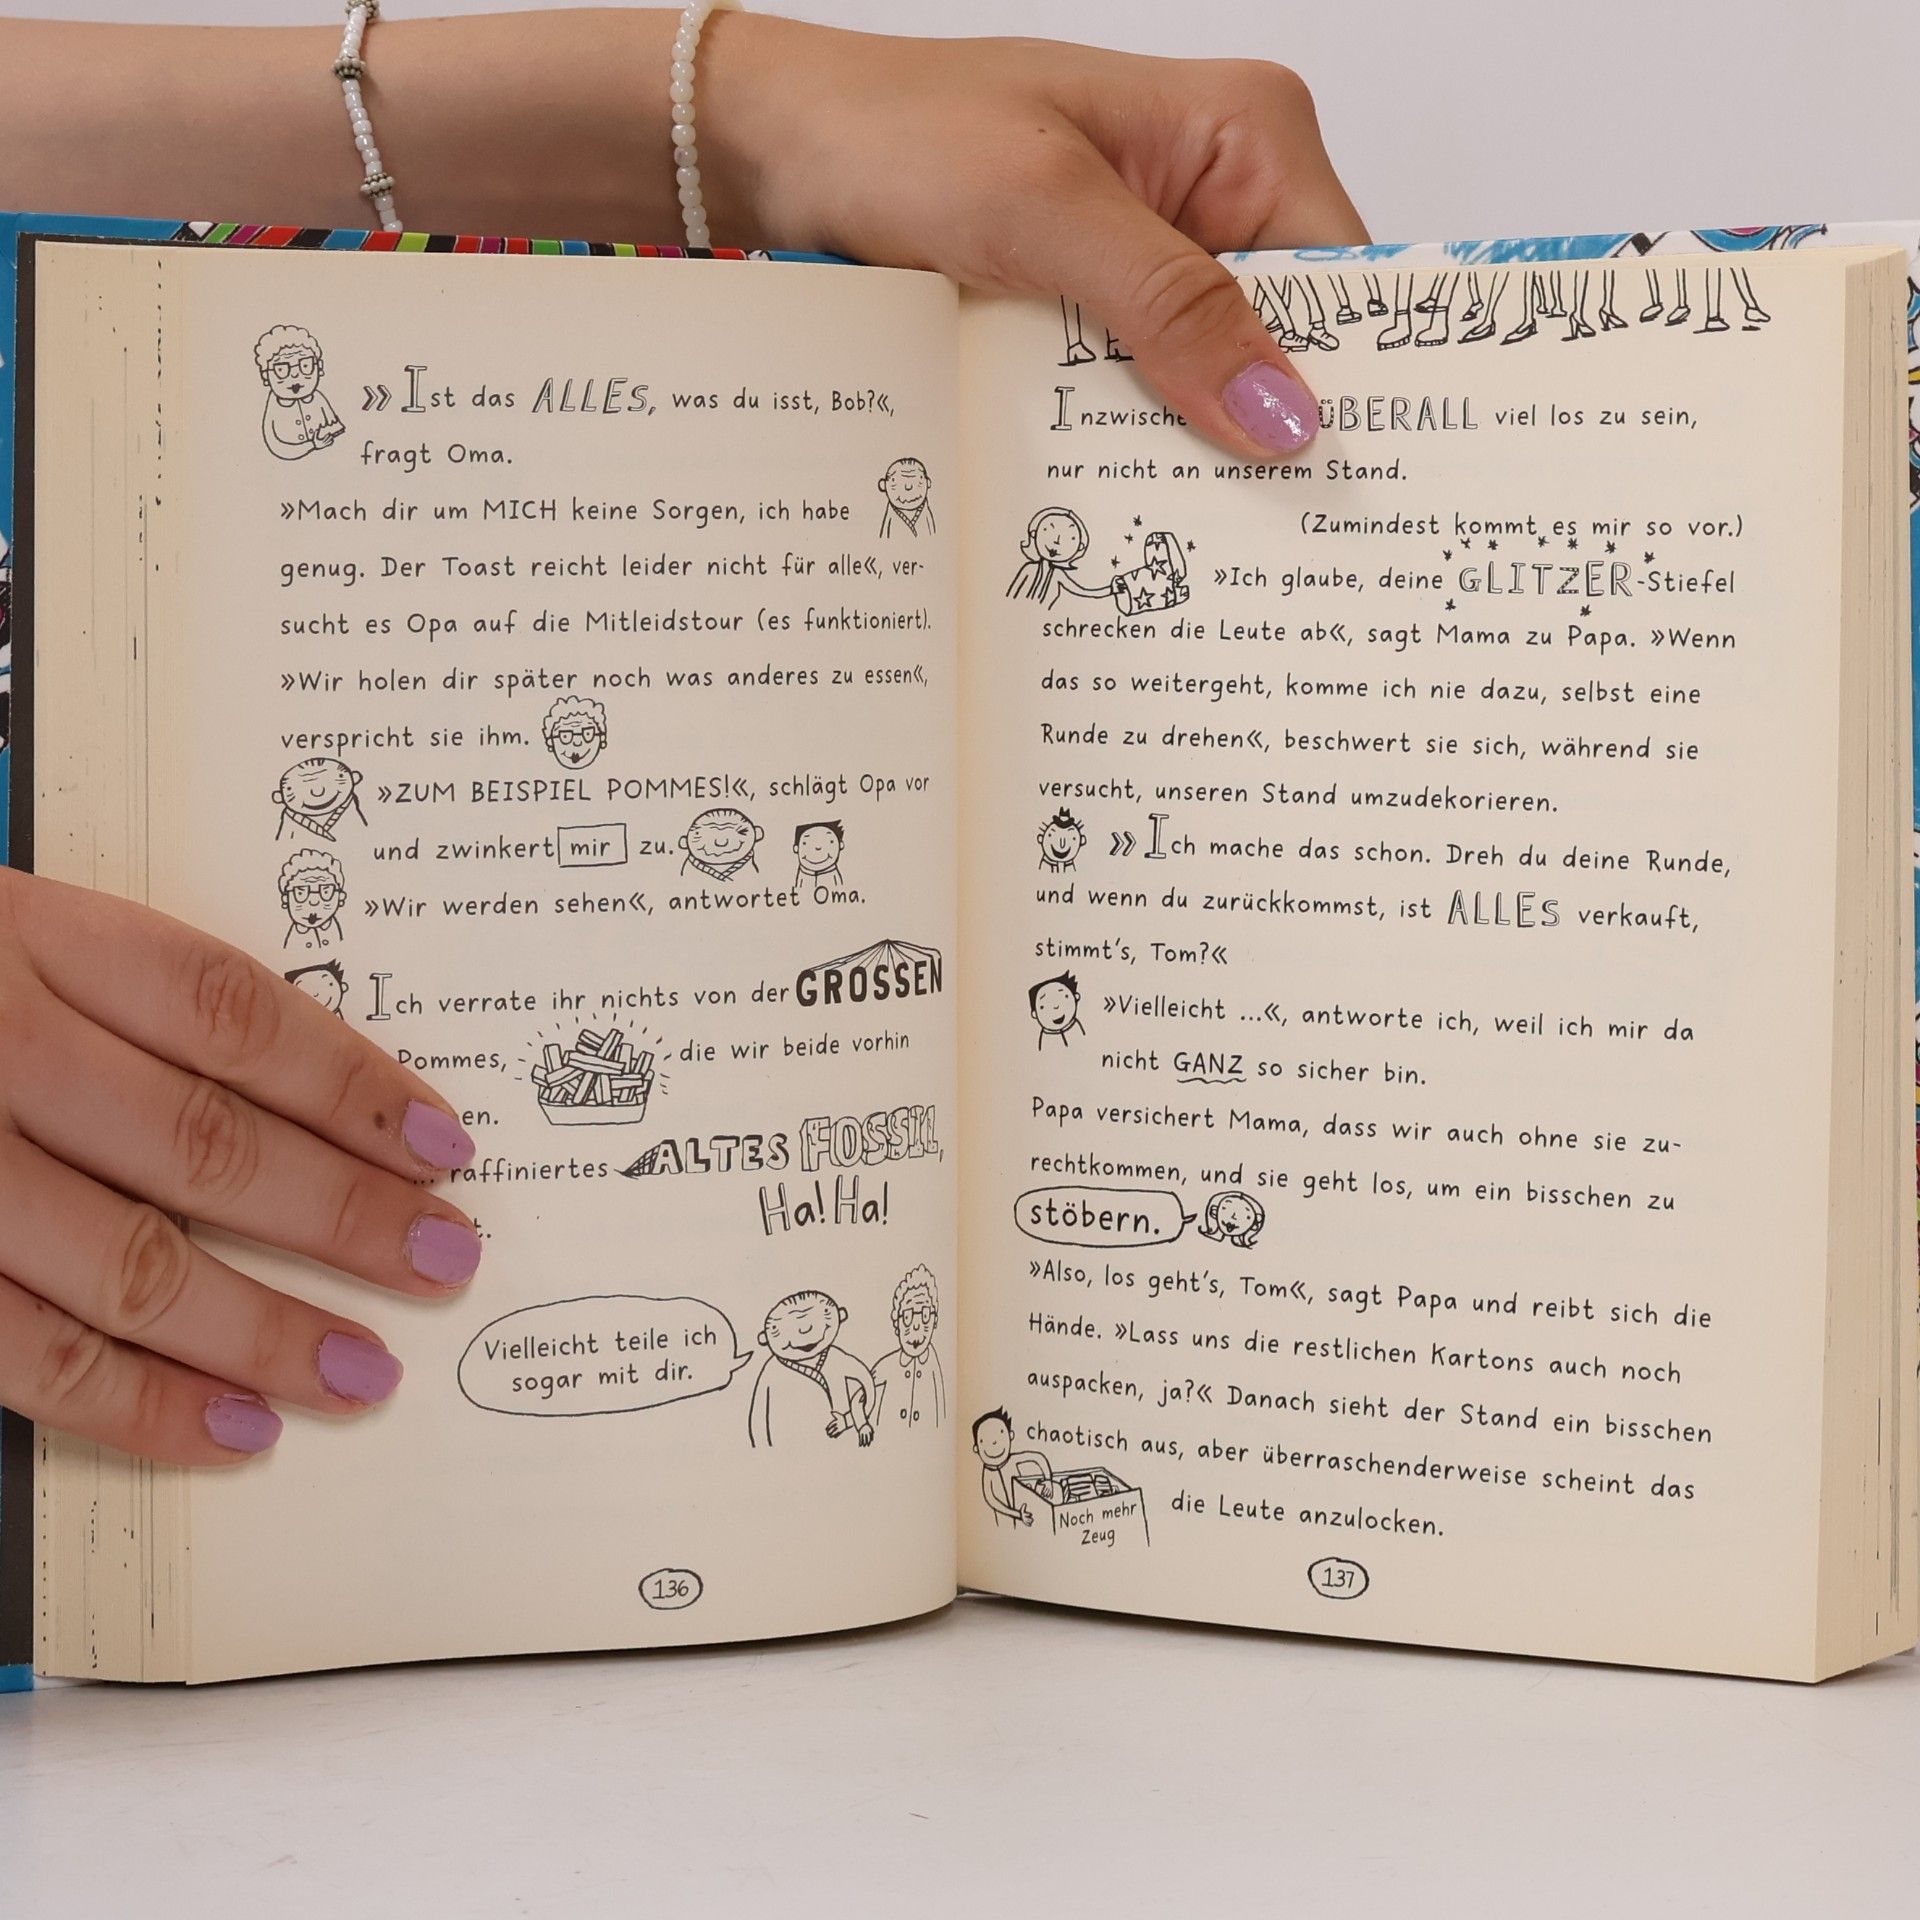 »Ist das ALLES, was du isst, Bob?«,
fragt Oma.
»Mach dir um MICH keine Sorgen, ich habe
genug. Der Toast reicht leider nicht für alle«, ver-
sucht es Opa auf die Mitleidstour (es funktioniert).
»Wir holen dir später noch was anderes zu essen«,
verspricht sie ihm.
»ZUM BEISPIEL POMMES!«, schlägt Opa vor
und zwinkert mir zu.
»Wir werden sehen«, antwortet Oma.
Ich verrate ihr nichts von der GROSSEN
Pommes, die wir beide vorhin
raffiniertes ALTES FOSSIL,
Ha! Ha!
Vielleicht teile ich
sogar mit dir.
136
ÜBERALL viel los zu sein,
nur nicht an unserem Stand.
(Zumindest kommt es mir so vor.)
»Ich glaube, deine GLITZER-Stiefel
schrecken die Leute ab«, sagt Mama zu Papa. »Wenn
das so weitergeht, komme ich nie dazu, selbst eine
Runde zu drehen«, beschwert sie sich, während sie
versucht, unseren Stand umzudekorieren.
»Ich mache das schon. Dreh du deine Runde,
und wenn du zurückkommst, ist ALLES verkauft,
stimmt's, Tom?«
»Vielleicht ...«, antworte ich, weil ich mir da
nicht GANZ so sicher bin.
Papa versichert Mama, dass wir auch ohne sie zu-
rechtkommen, und sie geht los, um ein bisschen zu
stöbern.
»Also, los geht's, Tom«, sagt Papa und reibt sich die
Hände. »Lass uns die restlichen Kartons auch noch
auspacken, ja?« Danach sieht der Stand ein bisschen
chaotisch aus, aber überraschenderweise scheint das
die Leute anzulocken.
Noch mehr
Zeug
137